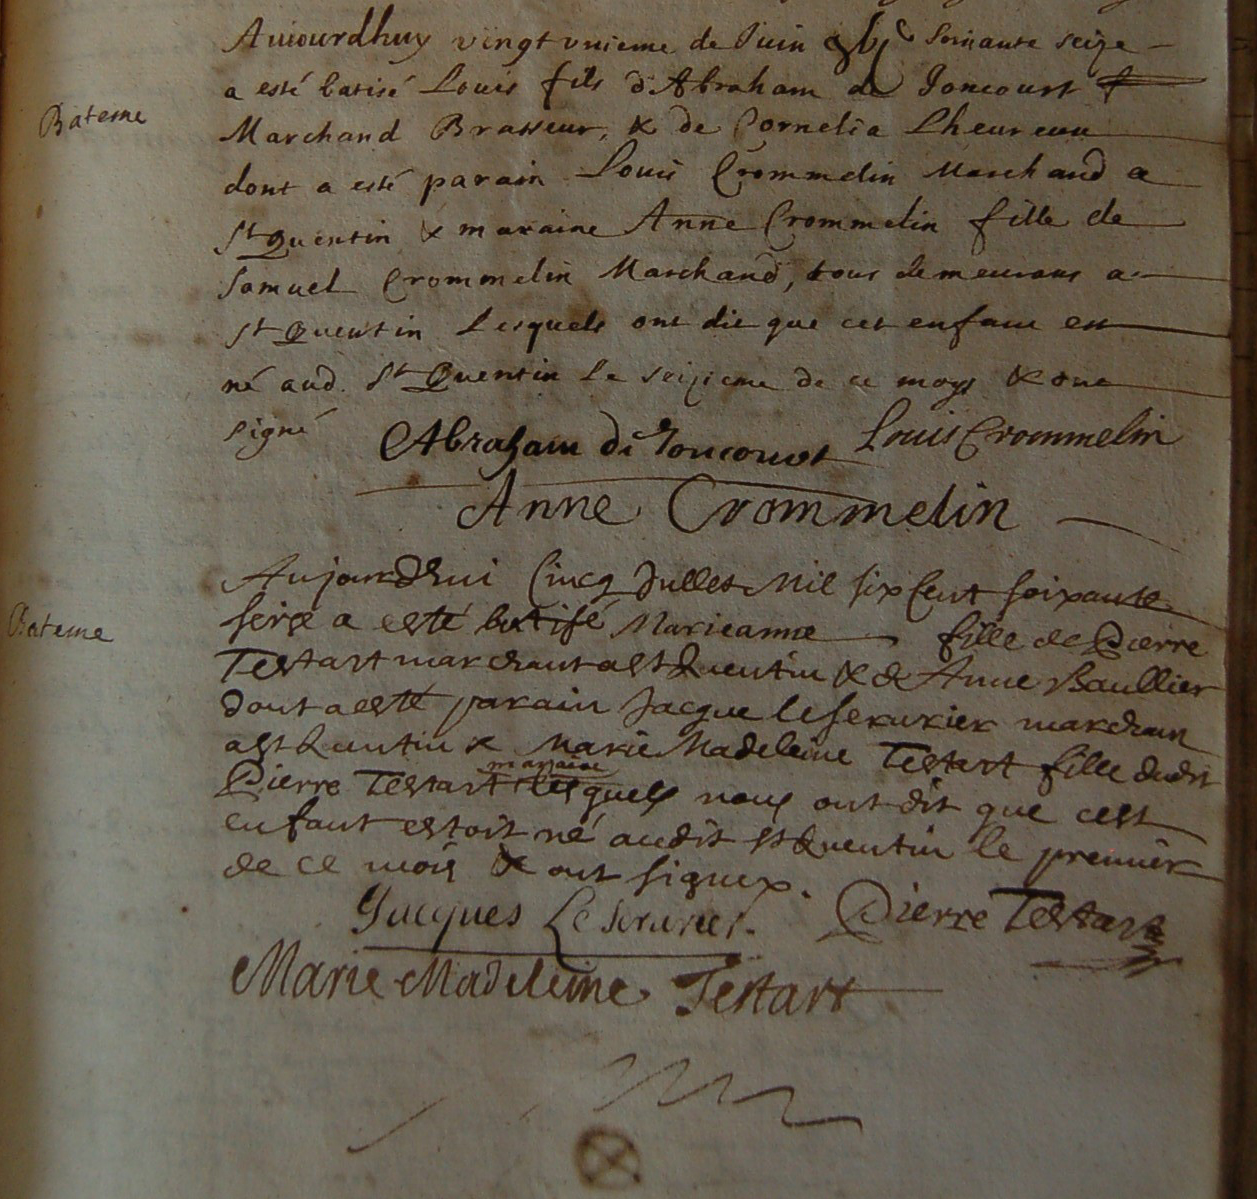 Auiourdhuy vingt vnieme de Juin soixante seize
Bateme
a esté batisé Louis fils d'Abraham de Joncourt
Marchand Brasseur, & de Cornelia Lheureux
dont a esté parain Louis Crommelin Marchand a
St Quentin & maraine Anne Crommelin fille de
Samuel Crommelin Marchand, tous demeurans a
St Quentin Lesquels ont dit que cet enfant est
né aud. St Quentin le seizieme de ce moys & ont
signé
Abraham de Joncourt Louis Crommelin
Anne Crommelin
Aujourdhui Cincq Jullet Mil six Cent soixante
Bateme
seise a esté batisé Marieanne fille de Pierre
Testart marchant a St Quentin & de Anne Baullier
dont a esté parain Jacque leserurier marchan
a St Quentin & Marie Madeleine Testart fille dudit
maraine
Pierre Testart lesquels nous ont dit que cest
enfant estoit né audit St Quentin le premier
de ce mois & ont signex.
Jacques Leserurier. Pierre Testart
Marie Madeleine Testart